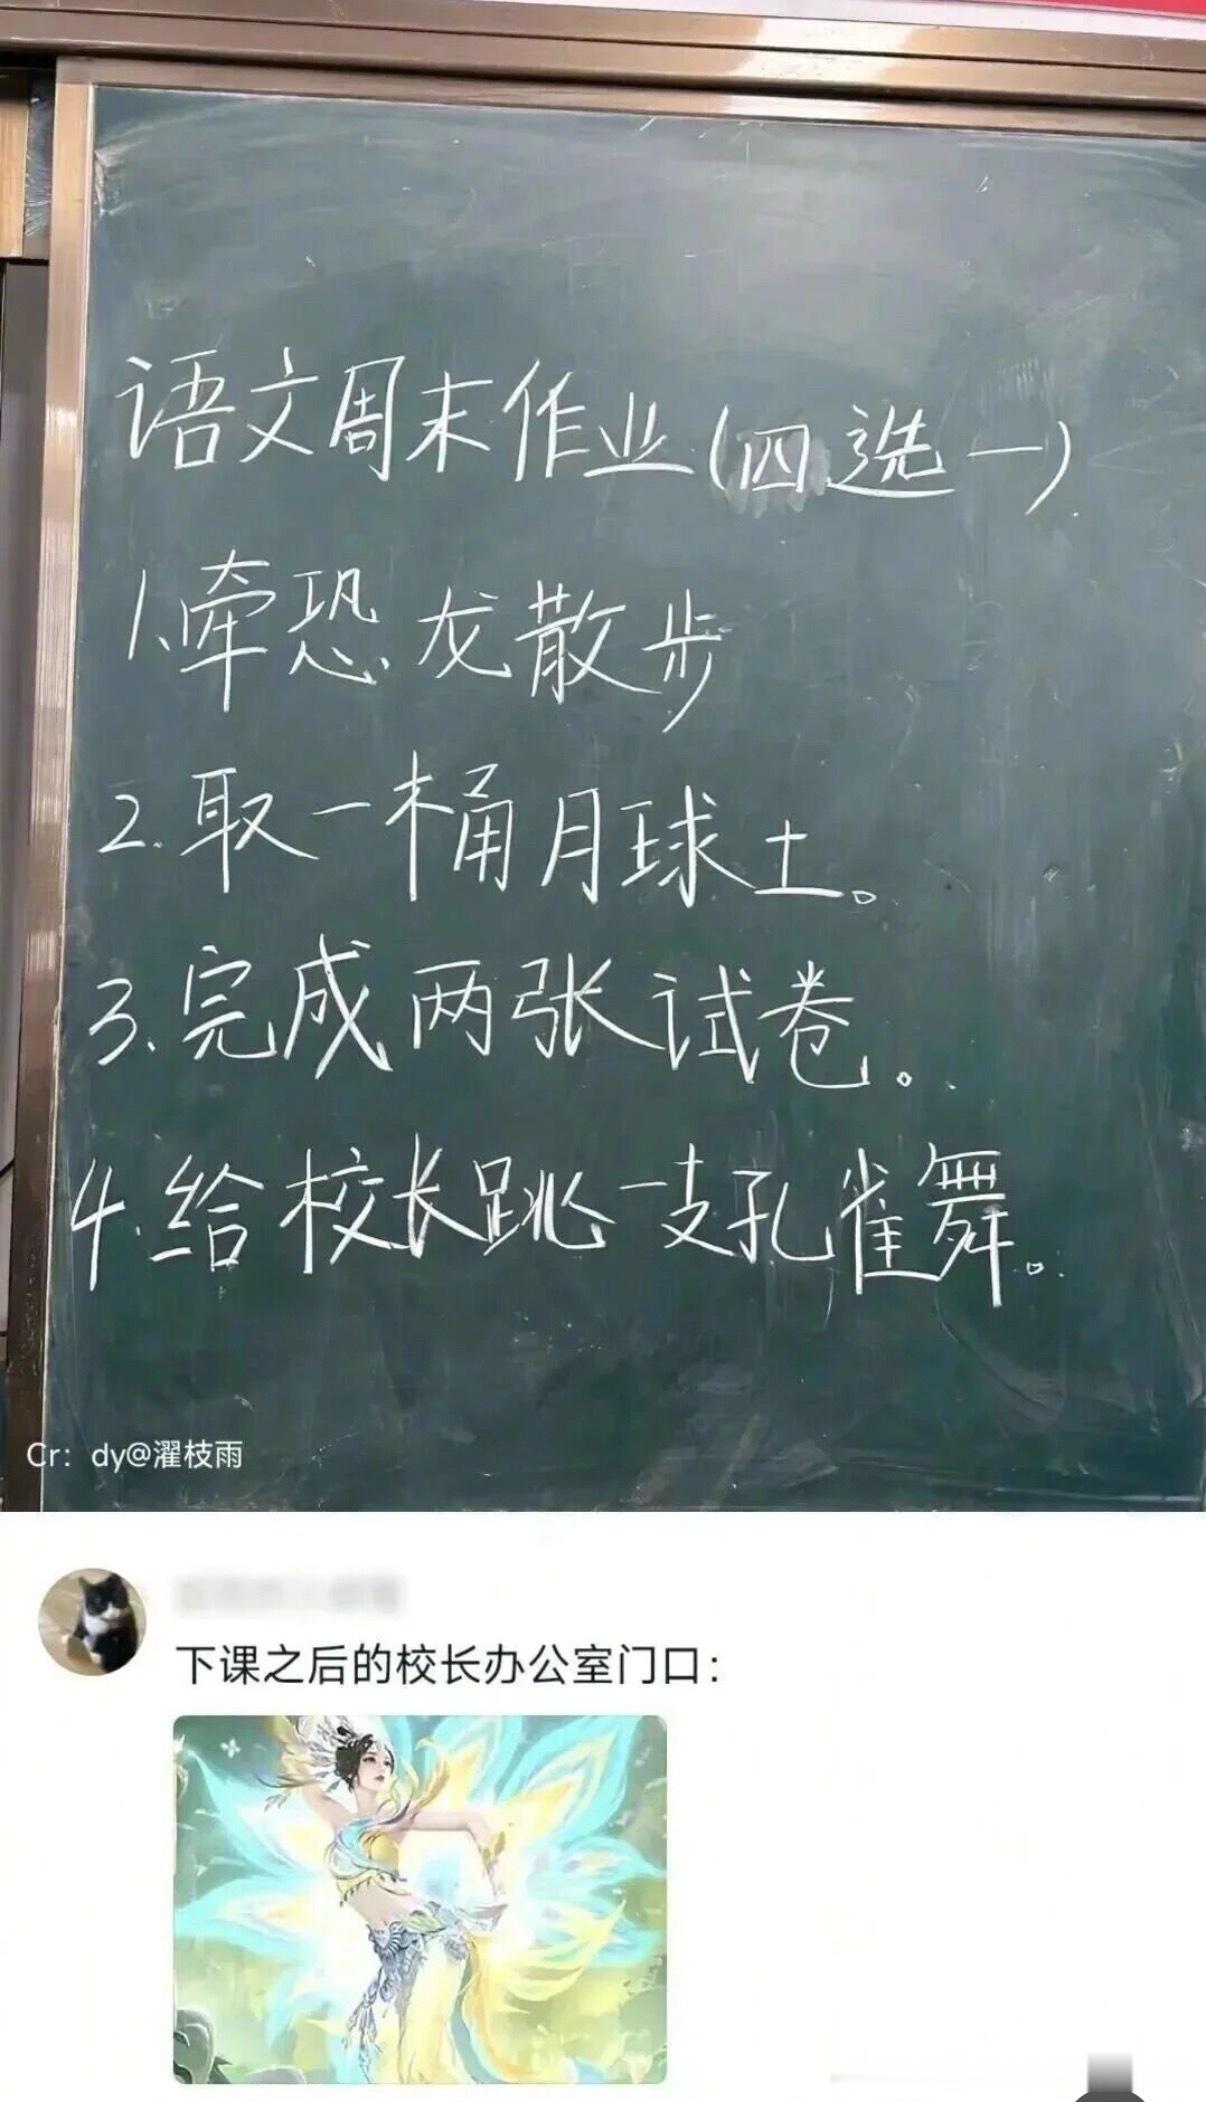 语文周末作业(四选一)
1.牵恐龙散步
2.取一桶月球土。
3.完成两张试卷。
4.给校长跳一支孔雀舞。
Cr：dy@濯枝雨
下课之后的校长办公室门口：